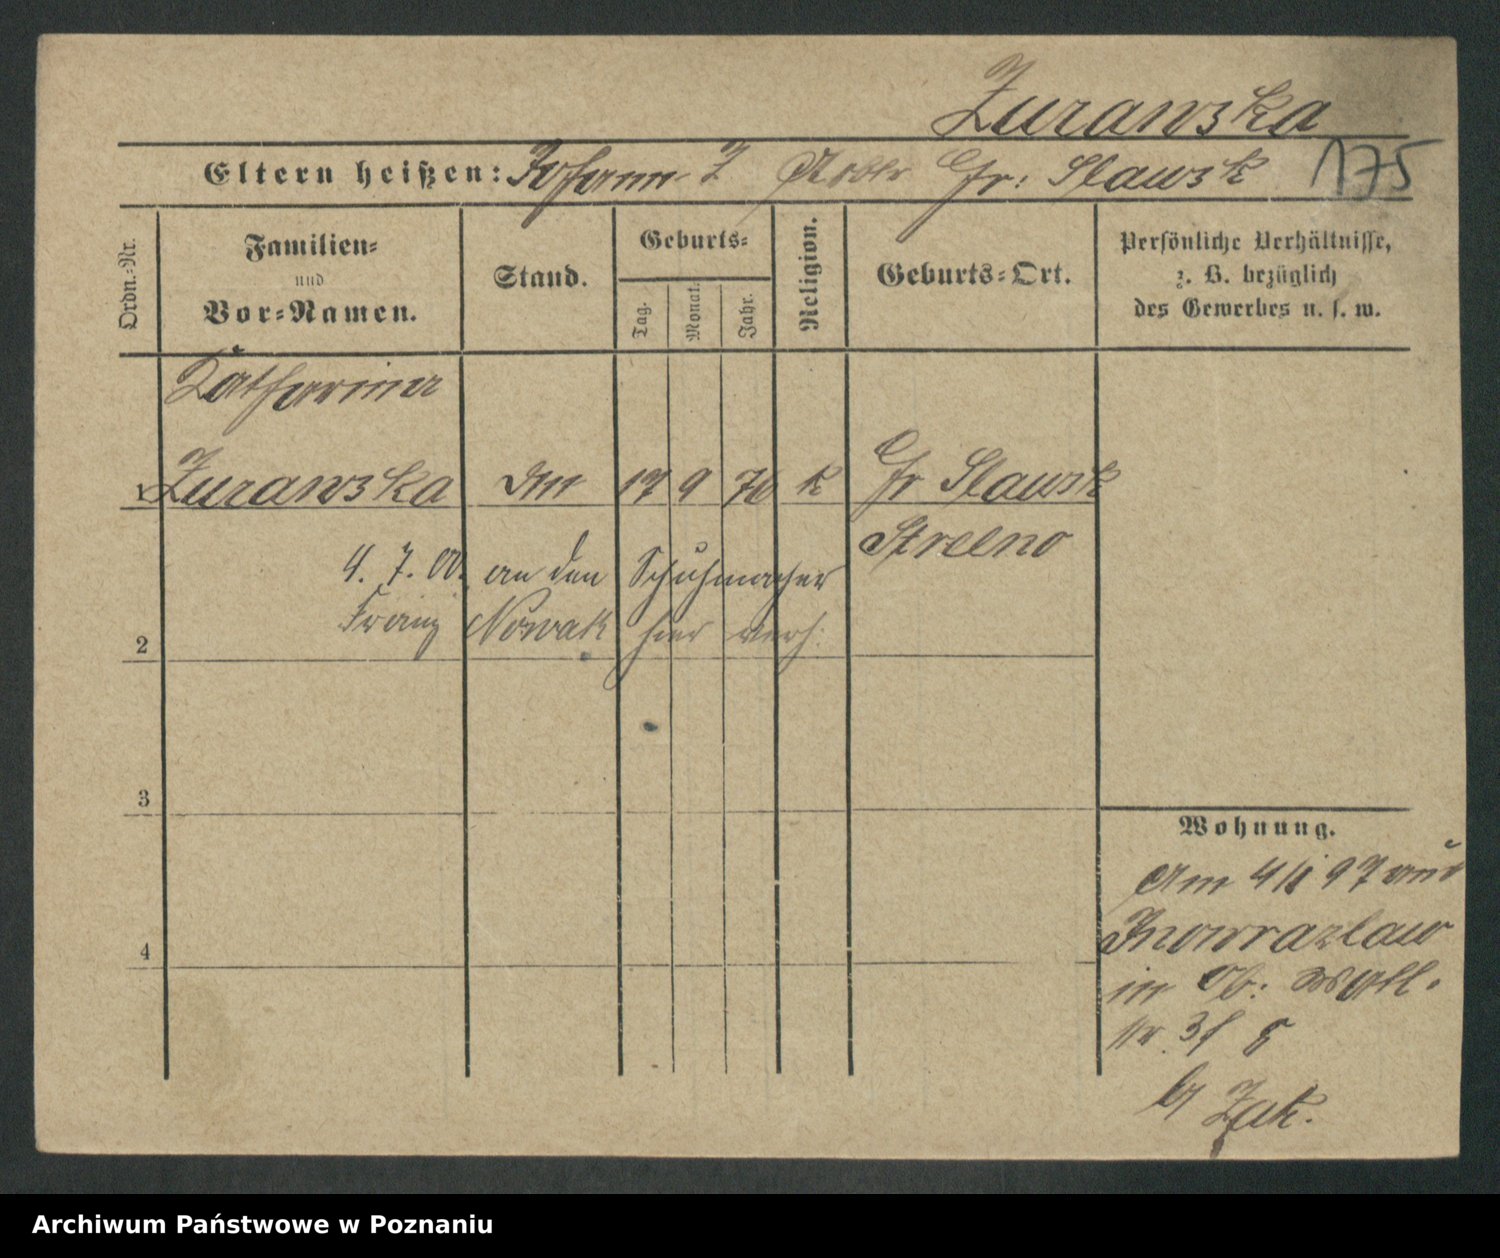 Zurawska
Eltern heißen: Johann Z Gr: Slawsk 175
Ordn.-Nr.
Familien-
und
Vor-Namen.
Stand.
Geburts-
Tag.
Monat.
Jahr.
Religion.
Geburts-Ort.
Persönliche Verhältnisse,
z. B. bezüglich
des Gewerbes u. s. w.
Katharina
1 Zurawska 17 9 76 k Gr Slawsk
Strelno
4. 7. 00. an den Schuhmacher
2 Franz Nowak hier verh.
3
Wohnung.
Am 4/1 97 aus
Inowrazlaw
4
in Ob: Wall.
nr. 3
b/ Zak.
Archiwum Państwowe w Poznaniu